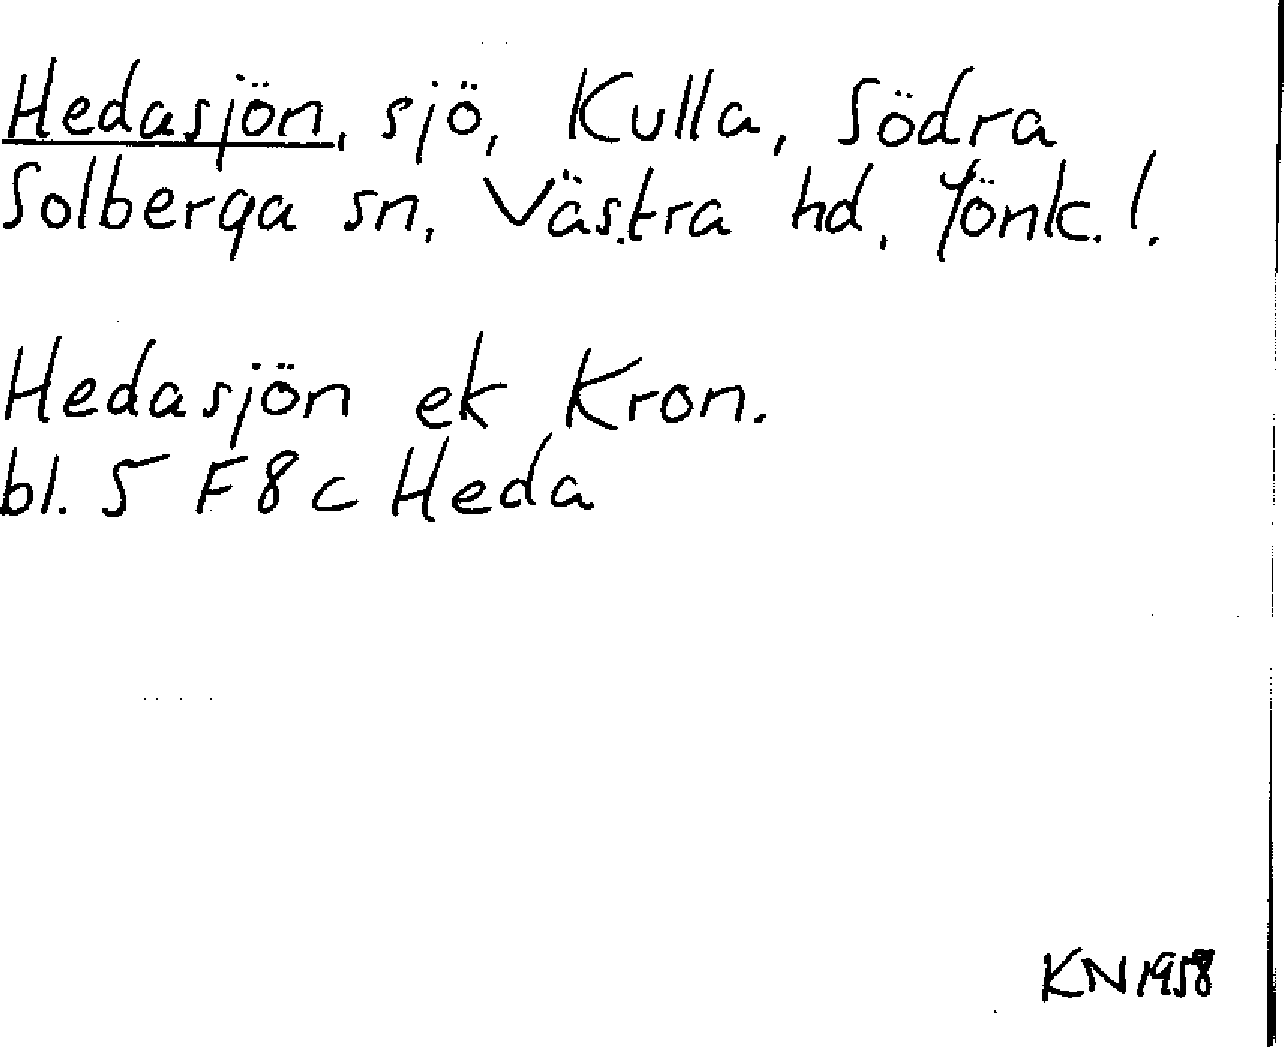 Hedasjön, sjö, Kulla, Södra
Solberga sn, Västra hd, Jönk. l.
Hedasjön ek Kron.
bl. 5 F8c Heda
KN 1958